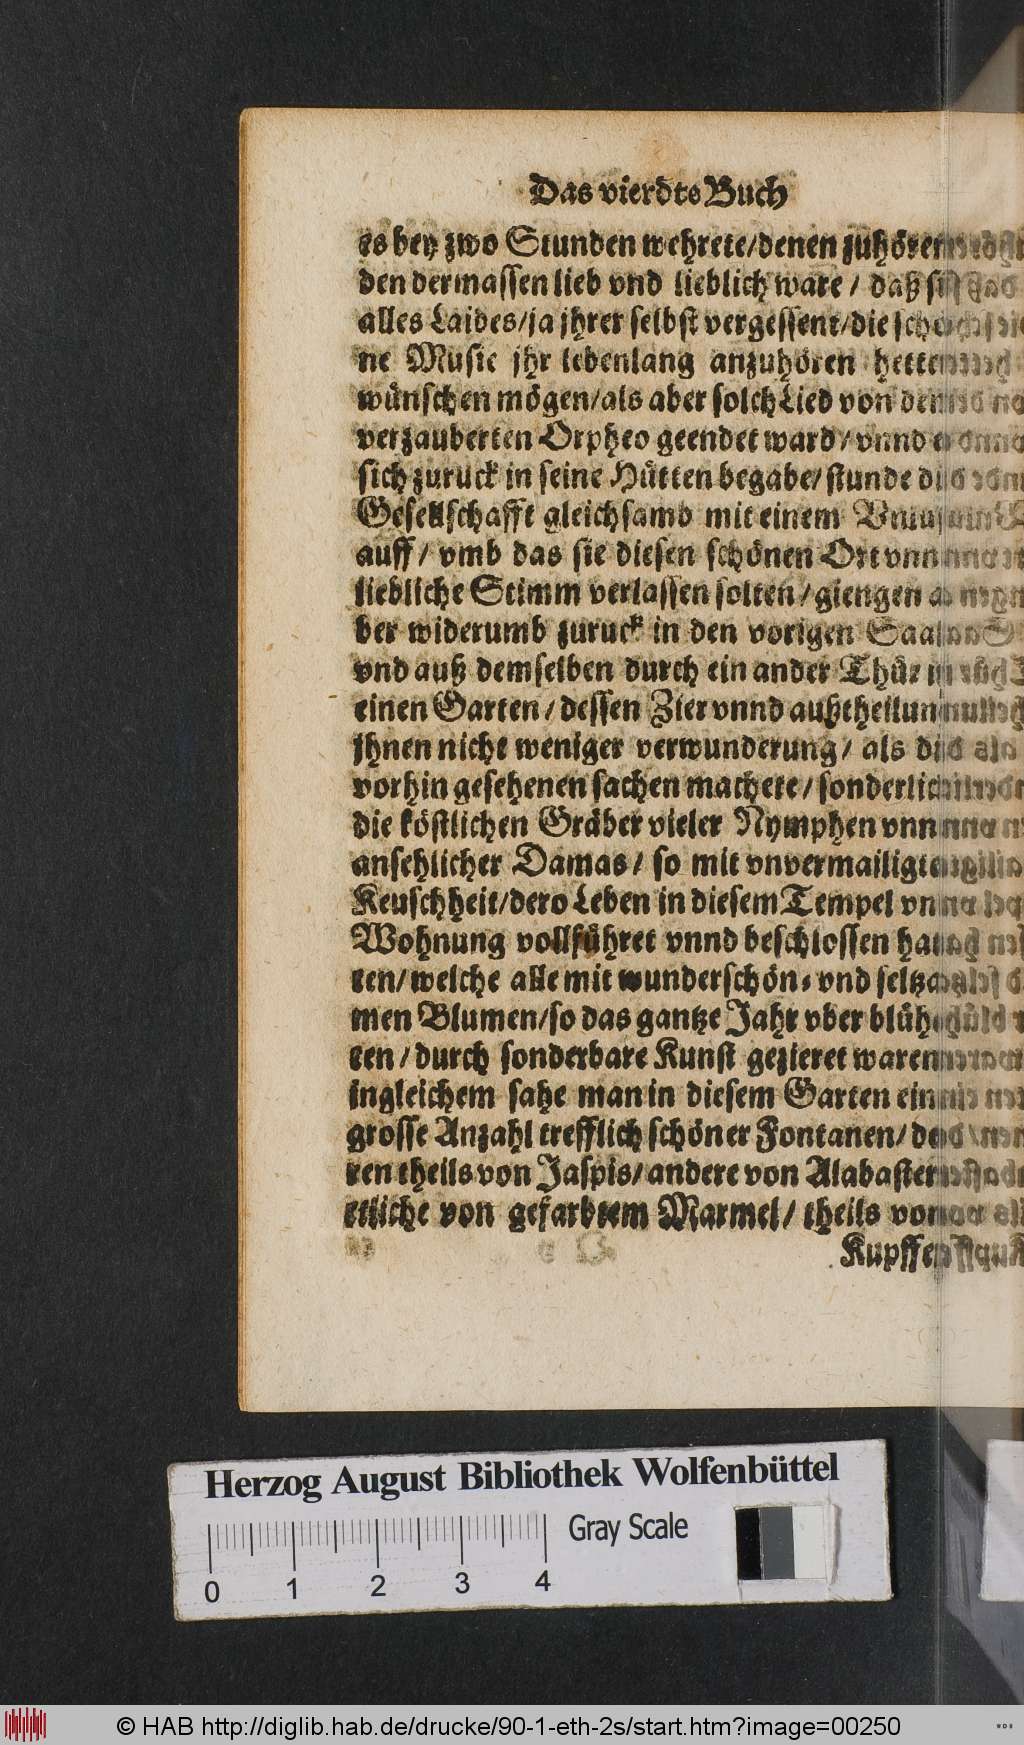 Das vierdte Buch
es bey zwo Stunden wehrete/denen zuhören-
den dermassen lieb vnd lieblich ware / daß sie
alles Laides/ja jhrer selbst vergessent/die schö-
ne Music jhr lebenlang anzuhören hetten
wünschen mögen/als aber solch Lied von dem
verzauberten Orpheo geendet ward/vnnd er
sich zuruck in seine Hütten begabe/stunde die
Gesellschafft gleichsamb mit einem Vnlust
auff/ vmb das sie diesen schönen Ort vnnd
liebliche Stimm verlassen solten/giengen a-
ber widerumb zuruck in den vorigen Saal
vnd auß demselben durch ein ander Thür in
einen Garten/dessen Zier vnnd außtheilung
jhnen nicht weniger verwunderung/ als die
vorhin gesehenen sachen machete/sonderlich
die köstlichen Gräber vieler Nymphen vnnd
ansehlicher Damas/ so mit vnvermailigter
Keuschheit/dero Leben in diesem Tempel vnd
Wohnung vollführet vnnd beschlossen hat-
ten/welche alle mit wunderschön- vnd seltza-
men Blumen/so das gantze Jahr vber blühe-
ten/durch sonderbare Kunst gezieret waren
ingleichem sahe man in diesem Garten ein
grosse Anzahl trefflich schöner Fontanen/de-
ren theils von Jaspis/andere von Alabaster
etliche von gefarbtem Marmel/ theils von
Kupffer
Herzog August Bibliothek Wolfenbüttel
Gray Scale
0 1 2 3 4
© HAB http://diglib.hab.de/drucke/90-1-eth-2s/start.htm?image=00250